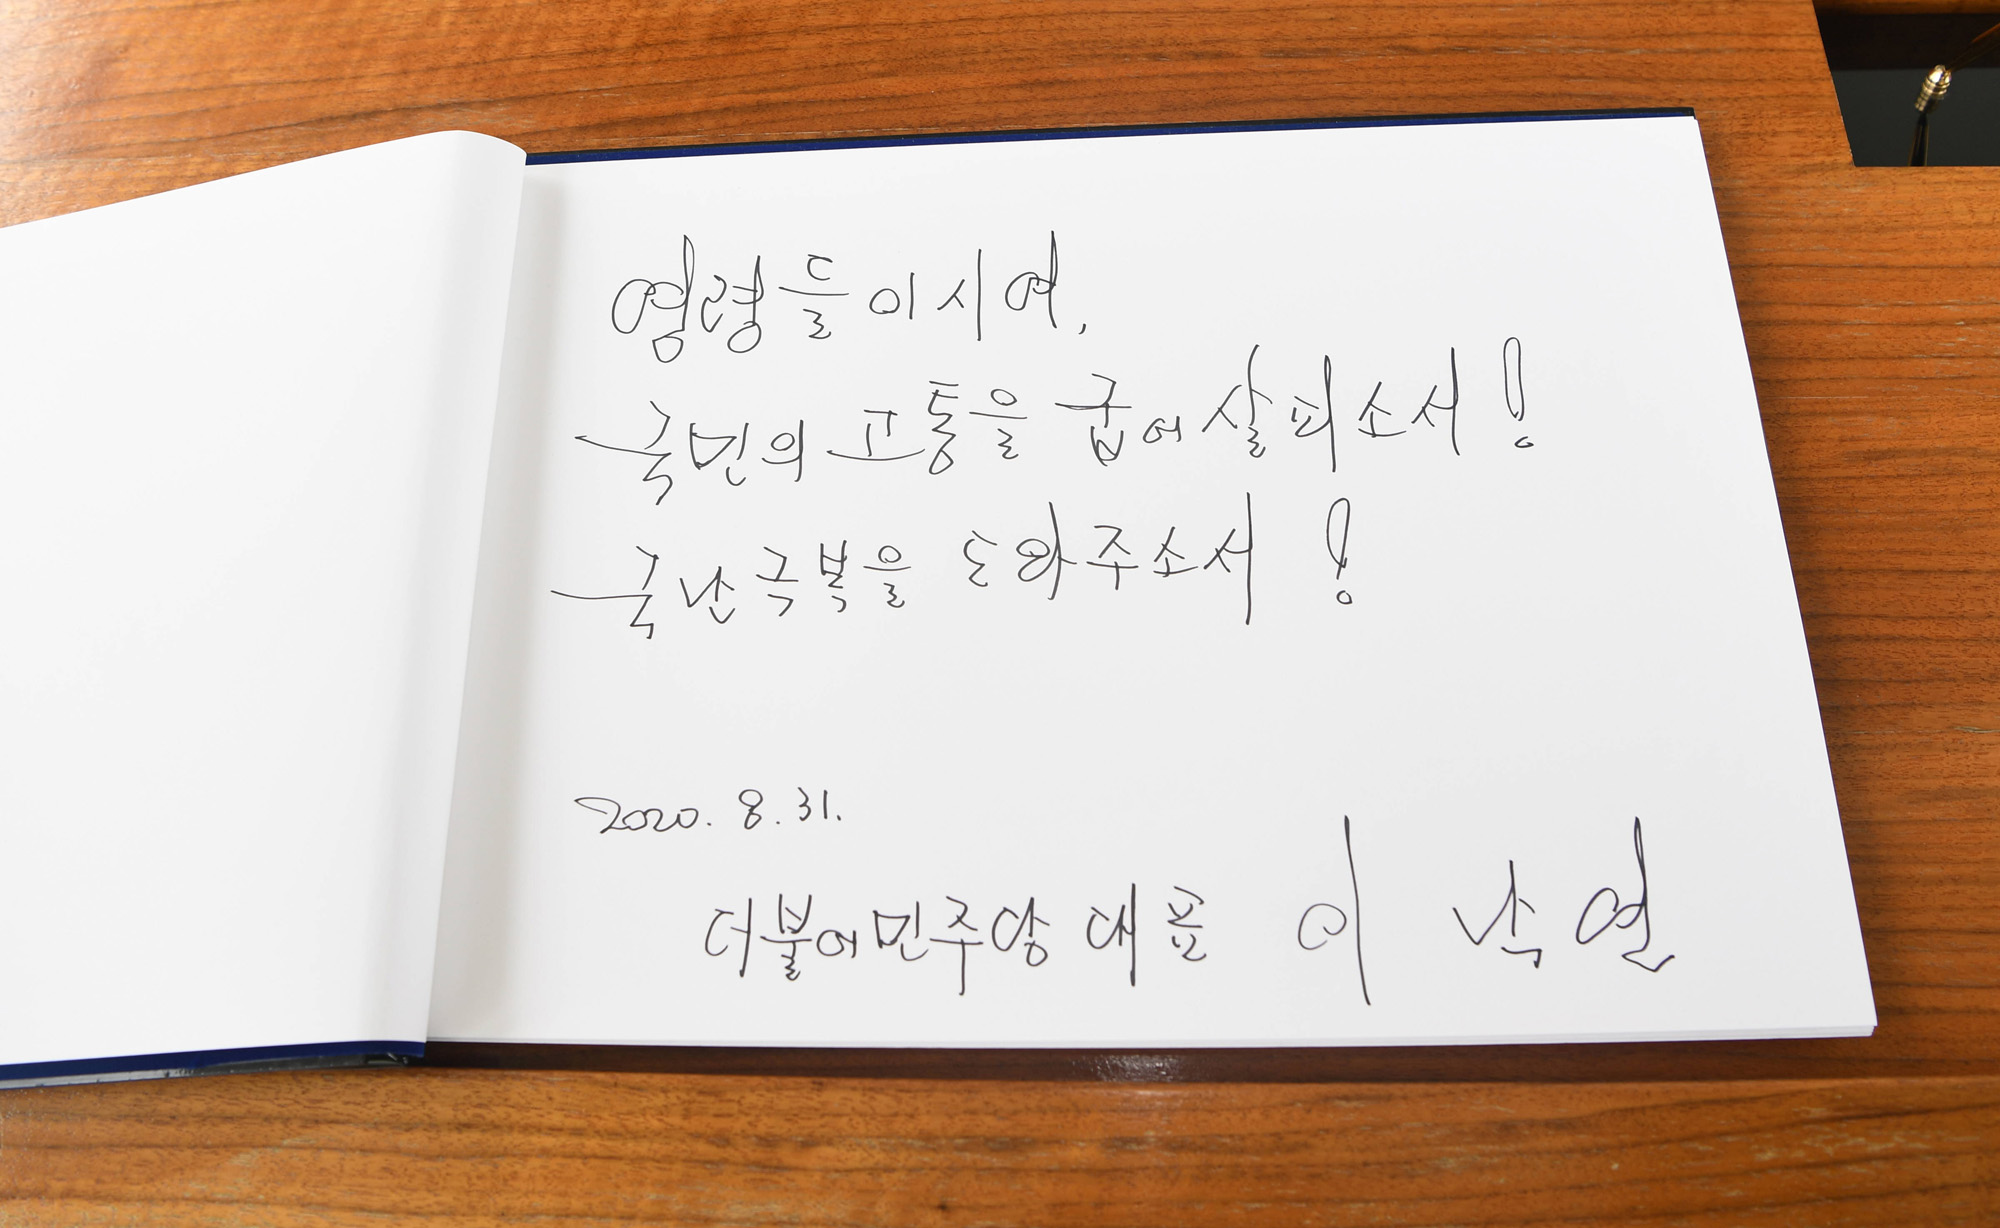 영령들이시여,
국민의 고통을 굽어살피소서!
국난극복을 도와주소서!
2020. 8. 31.
더불어민주당 대표 이낙연